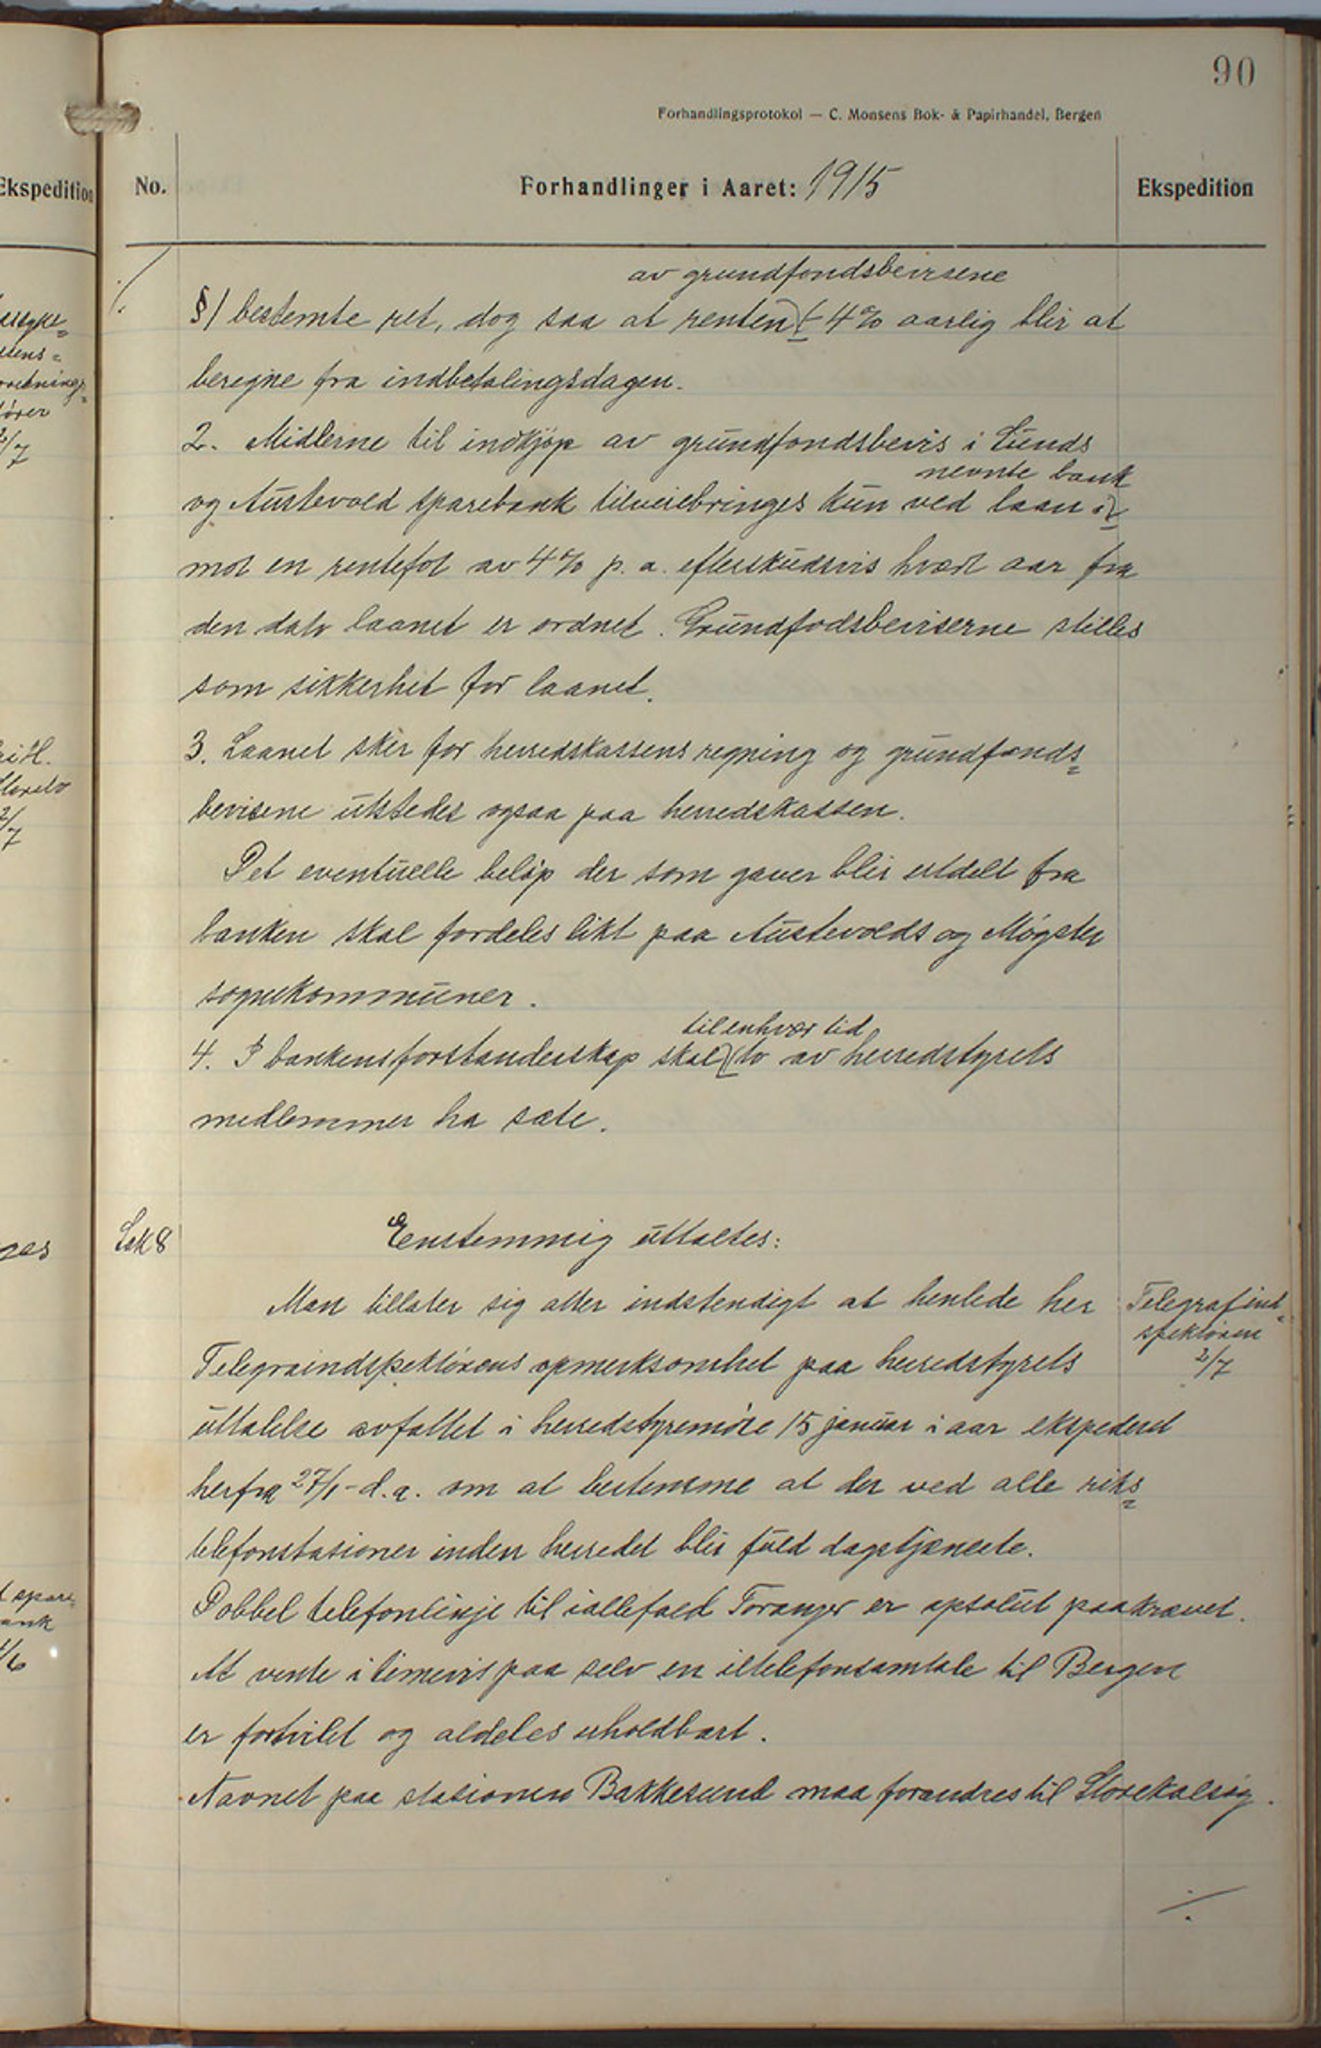 90
Forhandlingsprotokol — C. Monsens Bok- & Papirhandel, Bergen
Ekspedition
No.
Forhandlinger i Aaret: 1915
Ekspedition
av grundfondsbevisene
§1 bestemte ret, dog saa at renten 4% aarlig blir at
beregne fra indbetalingsdagen.
2. Midlerne til indkjøp av grundfondsbevis i Sunds
nevnte bank
og Austevold sparebank tilveiebringes kun ved laan i
mot en rentefot av 4% p. a. efterskudsvis hvært aar fra
den dato laanet er ordnet. Grundfodsbeviserne stilles
som sikkerhet for laanet.
3. Laanet sker for herredskassens regning og grundfonds=
bevisene utstedes ogsaa paa herredskassen.
Det eventuelle beløp der som gaver blir utdelt fra
banken skal fordeles likt paa Austevolds og Møgster
sognekommuner.
til enhver tid
4. I bankens forstanderskap skal to av herredstyrets
medlemmer ha sæte.
Sak 8
Enstemmig uttaltes:
Man tillater sig atter indstendigt at henlede her
Telegraindspektørens opmerksomhet paa herredstyrets
uttalelse avfattet i herredstyremøte 15 januar i aar ekspederet
herfra 27/1 - d.a. om at bestemme at der ved alle riks=
telefonstasioner inden herredet blir fuld dagstjæneste.
Dobbel telefonlinje til iallefald Toranger er apsolut paakrævet.
At vente i timevis paa selv en iltelefonsamtale til Bergen
er fortvilet og aldeles uholdbart.
Navnet paa stasionen Bakkesund maa forandres til Storekalsøy.
Telegrafind=
spektøren
2/7